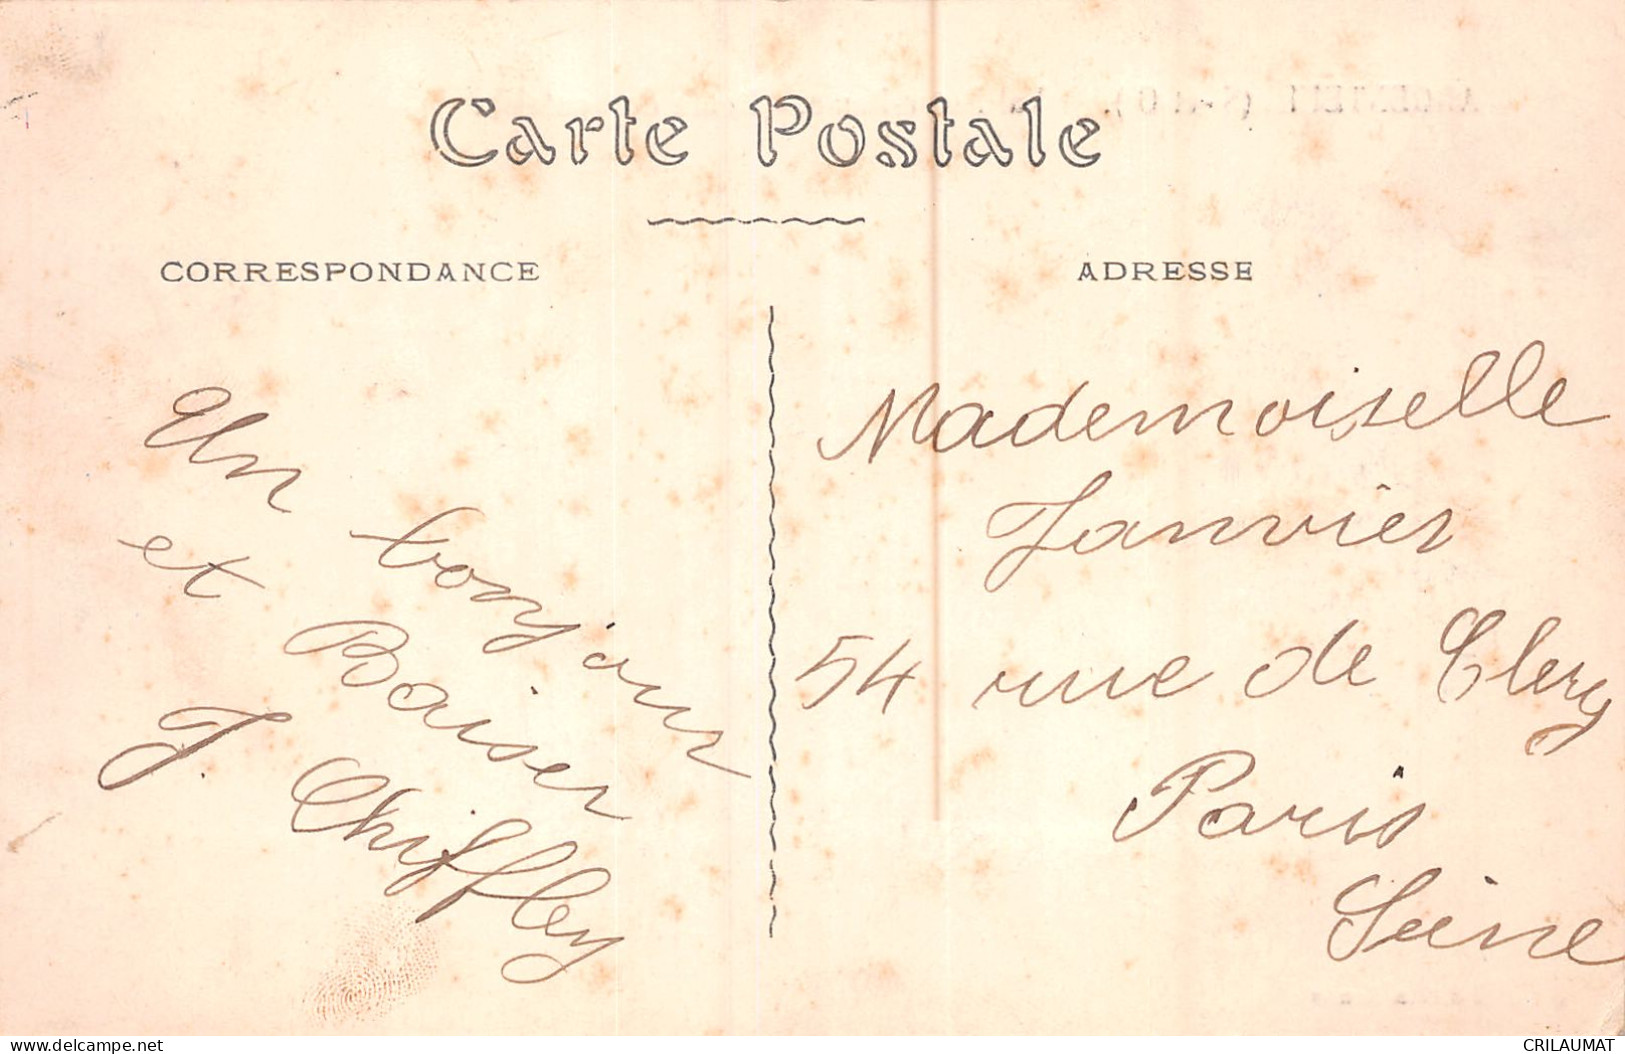 Carte Postale
CORRESPONDANCE
Un bonjour
et Baiser
J. Chiffley
ADRESSE
Mademoiselle
Janvier
54 rue de Clery
Paris
Seine
www.delcampe.net
CRILAUMAT